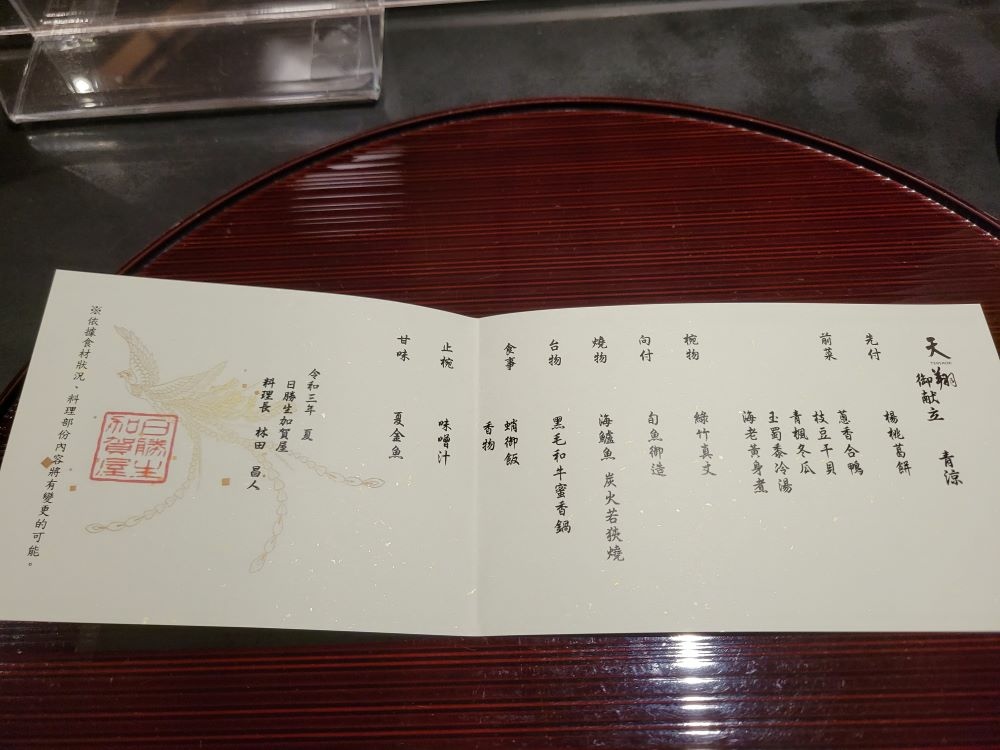 天翔
御献立　青涼
先付
楊桃葛餅
前菜
蔥香合鴨
枝豆干貝
青楓冬瓜
玉蜀黍冷湯
海老黃身煮
椀物
綠竹真丈
向付
旬魚御造
燒物
海鱸魚　炭火若狹燒
台物
黑毛和牛蜜香鍋
食事
蛸御飯
香物
止椀
味噌汁
甘味
夏金魚
令和三年　夏
日勝生加賀屋
料理長　林田　昌人
日勝生
加賀屋
※依據食材狀況、料理部份內容將有變更的可能。